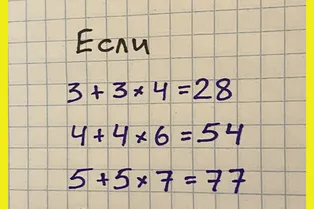 Если
3 + 3 × 4 = 28
4 + 4 × 6 = 54
5 + 5 × 7 = 77